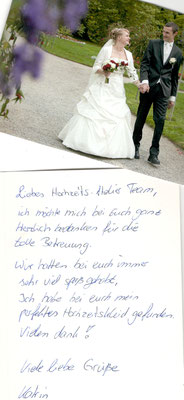 Liebes Hochzeits-Atelier Team,
ich möchte mich bei Euch ganz
herzlich bedanken für die
tolle Betreuung.
Wir hatten bei euch immer
sehr viel spaß gehabt,
Ich habe bei euch mein
perfektes Hochzeitskleid gefunden.
Vielen dank!!
Viele liebe Grüße
Katrin